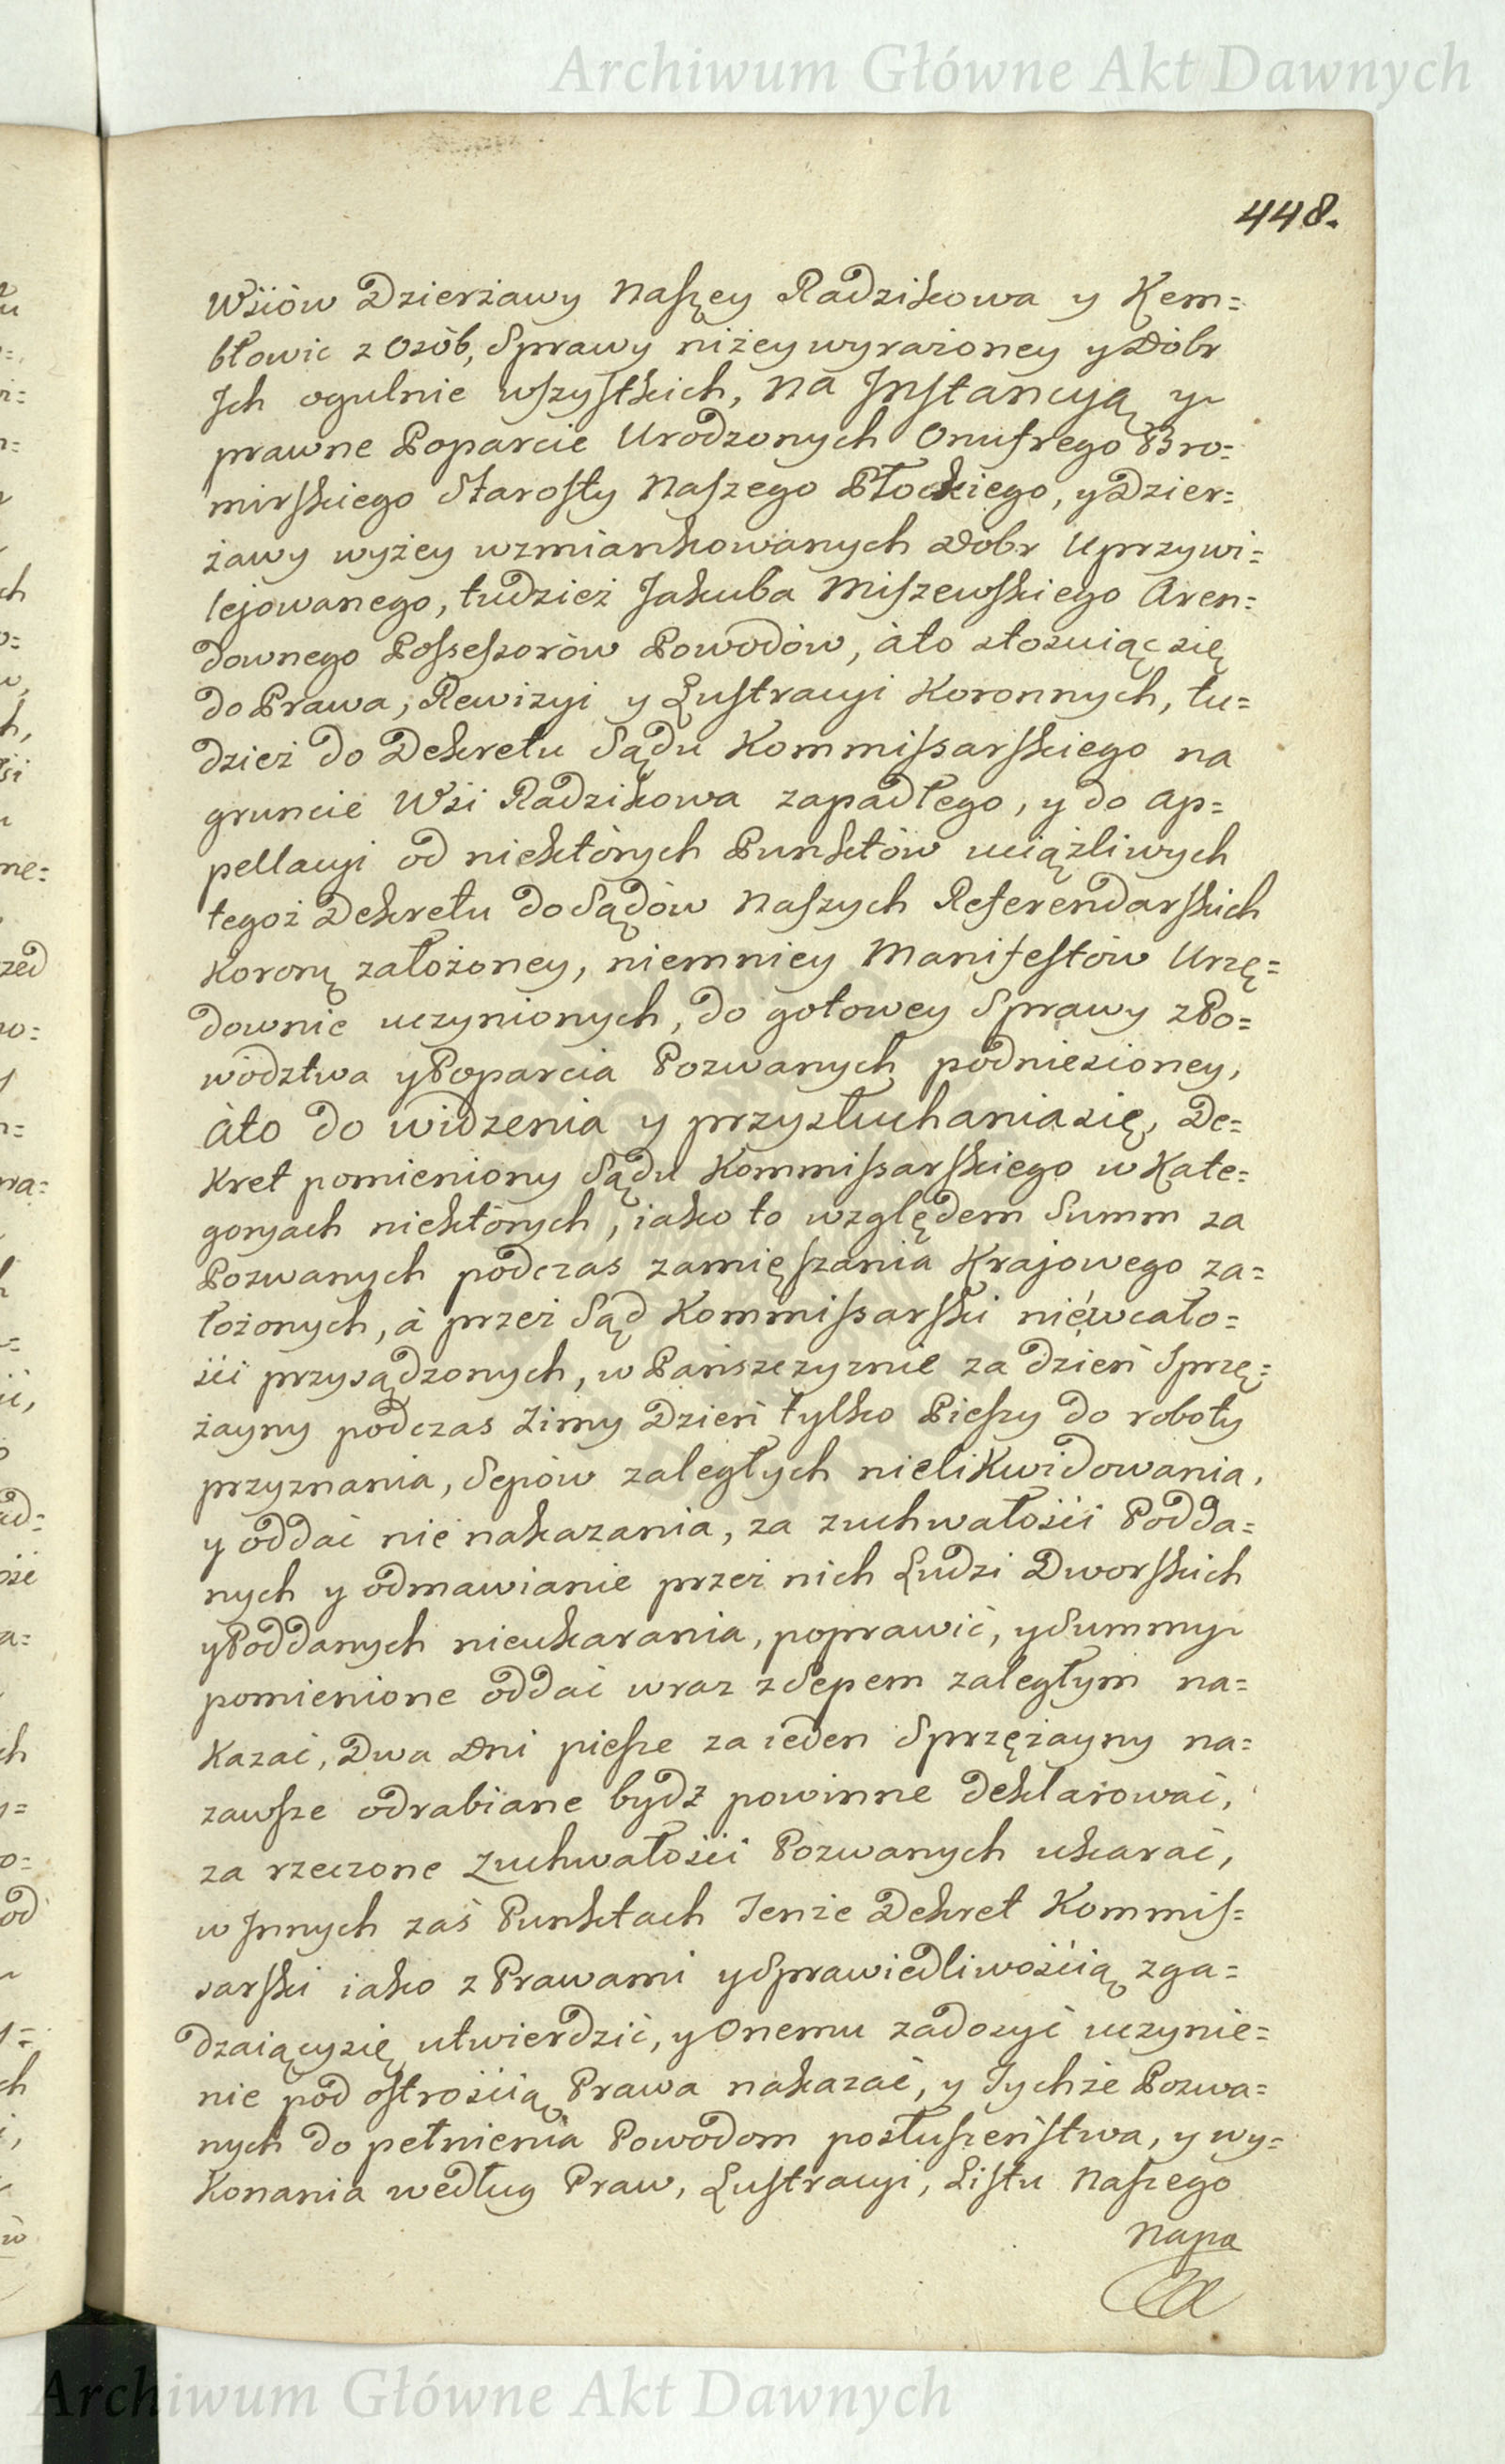 Archiwum Główne Akt Dawnych
448.
Wsiów Dzierżawy Naszey Radzikowa y Kem=
błowic z Osób, Sprawy niżey wyrażoney y Dóbr
Ich ogulnie wszystkich, na Instancyją y
prawne Poparcie Urodzonych Onufrego Bro=
mirskiego Starosty Naszego Płockiego, y Dzier=
żawy wyżey wzmiankowanych Dóbr Uprzywi=
lejowanego, tudzież Jakuba Miszewskiego Aren=
downego Possessorów Powodów, àto stosuiąc się
do Prawa, Rewizyi y Lustracyi Koronnych, tu=
dzież do Dekretu Sądu Kommissarskiego na
gruncie Wsi Radzikowa zapadłego, y do Ap=
pellacyi od niektórych Punktów uciążliwych
tegoż Dekretu do Sądów Naszych Referendarskich
Korony założoney, niemniey Manifestów Urzę=
downie uczynionych, do gotowey Sprawy z Po=
wództwa y Poparcia Pozwanych podniesioney,
àto do widzenia y przysłuchania się, De=
kret pomieniony Sądu Kommissarskiego w Kate=
goryach niektórych, iako to względem Summ za
Pozwanych podczas zamięszania Krajowego za=
łożonych, à przez Sąd Kommissarski niewcało=
ści przysądzonych, w Pańszczyznie za dzień Sprzę=
żayny podczas Zimy Dzień tylko Pieszy do roboty
przyznania, Sepów zaległych nielikwidowania,
y oddać nie nakazania, za zuchwałości Podda=
nych y odmawianie przez nich Ludzi Dworskich
y Poddanych nieukarania, poprawić, y Summy
pomienione oddać wraz z Sepem zaległym na=
kazać, Dwa Dni piesze za ieden Sprzężayny na=
zawsze odrabiane bydź powinne deklarować,
za rzeczone zuchwałości Pozwanych ukarać,
w Innych zaś Punktach Tenże Dekret Kommis=
sarski iako z Prawami y Sprawiedliwością zga=
dzaiący się utwierdzić, y Onemu zadosyć uczynie=
nie pod ostrością Prawa nakazać, y Tychże Pozwa=
nych do pełnienia Powodom posłuszeństwa, y wy=
konania według Praw, Lustracyi, Listu Naszego
Napa
Archiwum Główne Akt Dawnych